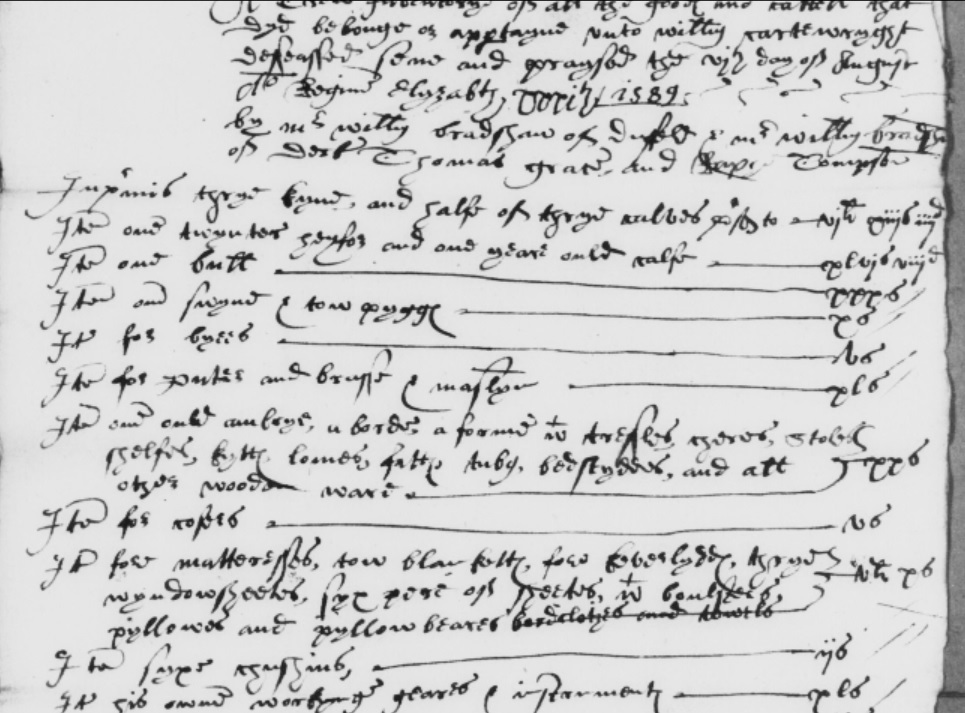 A trewe inventorye of all the goods and cattell that
dyd belonge or appertayne unto willm cartewryght
deseassed sene and praysed the vijth day of August
Ao Regine Elyzabth xxxjth 1589
by mr willm bradshaw of duffeld & mr willm bradsha
of derb Thomas grate and Tompson
Inprimis thrye kyne and halfe of thrye calves
Ite one twynter heyfor and one yeare ould calfe xlvjs viijd
Ite one bull xxxs
Itm one swyne & tow pyggs xs
Ite for byees vs
Ite for puter and brasse & maslyn xls
Ite one ould aulrye, a borde, a forme wt tressles, cheres, stoles
shelfes, kytts lomes, fatts tubs, bedstyddes, and all xxs
other wooden ware
Ite for cofers vs
It fore matteresses, tow blanketts, fore keverlydds, thrye
wyndowsheetes, syx pere of sheetes, wt boulsters, xs
pyllowes and pyllowbeares bordclothes and towels
Itm syxe chushins, ijs
It his owne workynge geares & instruments xls